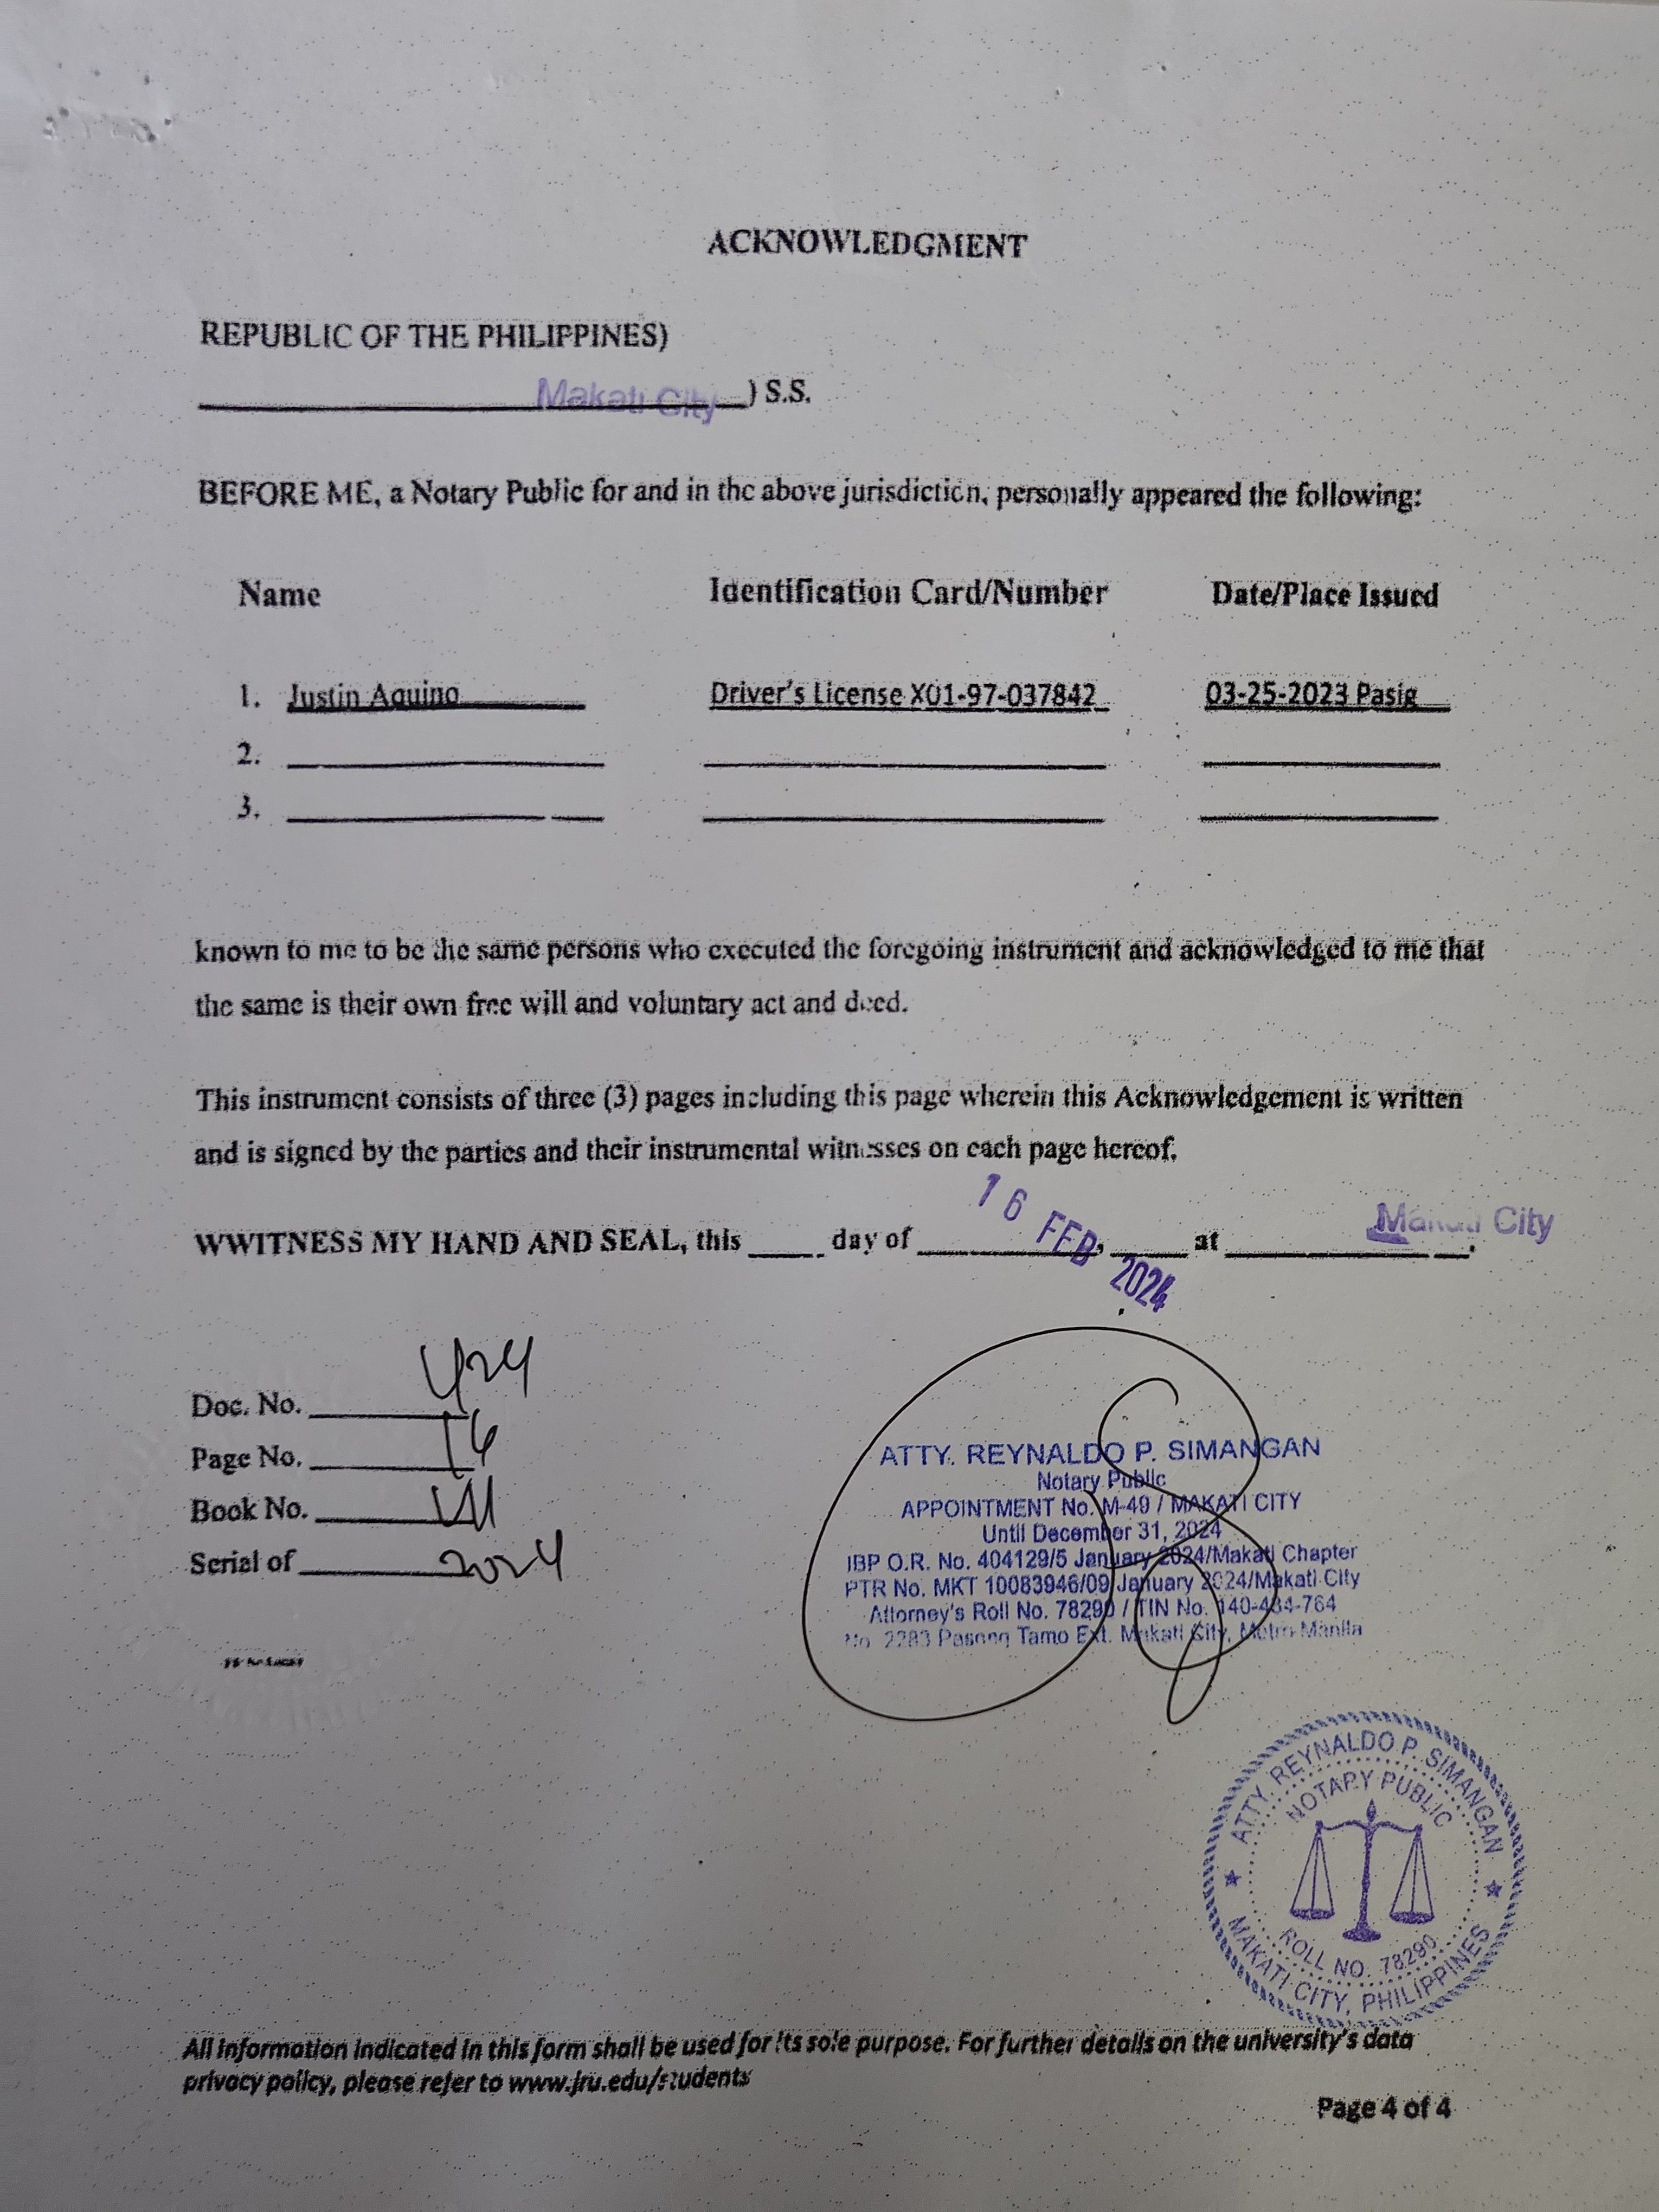 ACKNOWLEDGMENT
REPUBLIC OF THE PHILIPPINES)
Makati City ) S.S.
BEFORE ME, a Notary Public for and in the above jurisdiction, personally appeared the following:
Name Identification Card/Number Date/Place Issued
1. Justin Aquino Driver's License X01-97-037842 03-25-2023 Pasig
2.
3.
known to me to be the same persons who executed the foregoing instrument and acknowledged to me that
the same is their own free will and voluntary act and deed.
This instrument consists of three (3) pages including this page wherein this Acknowledgement is written
and is signed by the parties and their instrumental witnesses on each page hereof.
WWITNESS MY HAND AND SEAL, this ____ day of 16 FEB, 2024 at Makati City.
Doc. No. 424
Page No. 16
Book No. VII
Serial of 2024
ATTY. REYNALDO P. SIMANGAN
Notary Public
APPOINTMENT No. M-49 / MAKATI CITY
Until December 31, 2024
IBP O.R. No. 404129/5 January 2024/Makati Chapter
PTR No. MKT 10083946/09 January 2024/Makati City
Attorney's Roll No. 78290 / TIN No. 140-434-764
No. 2283 Pasong Tamo Ext. Makati City, Metro Manila
ATTY. REYNALDO P. SIMANGAN
NOTARY PUBLIC
ROLL NO. 78290
MAKATI CITY, PHILIPPINES
All information indicated in this form shall be used for its sole purpose. For further details on the university's data
privacy policy, please refer to www.jru.edu/students
Page 4 of 4